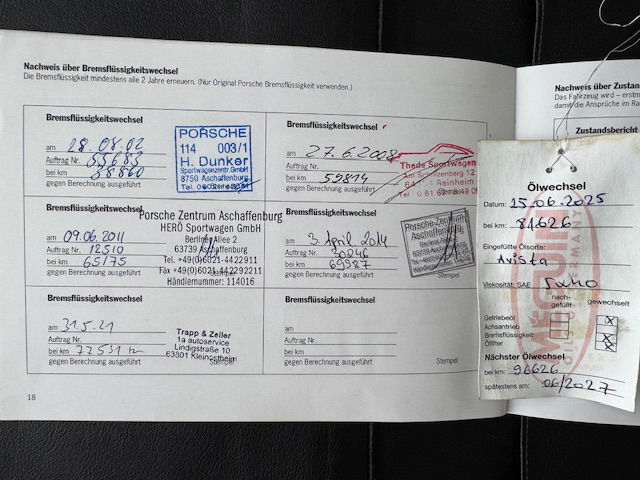 Nachweis über Bremsflüssigkeitswechsel
Die Bremsflüssigkeit mindestens alle 2 Jahre erneuern. (Nur Original Porsche Bremsflüssigkeit verwenden.)
Bremsflüssigkeitswechsel
am 28.08.02
Auftrag Nr. 55683
bei km 38860
gegen Berechnung ausgeführt
PORSCHE
114 003/1
H. Dunker
Sportwagenzentr. GmbH
8750 Aschaffenburg
Bremsflüssigkeitswechsel
am 27.6.2008
Auftrag Nr.
bei km 59814
gegen Berechnung ausgeführt
Thede Sportwagen
Am Schützenberg 12
64 Reinheim
Bremsflüssigkeitswechsel
am 09.06.2011
Auftrag Nr. 12510
bei km 65175
gegen Berechnung ausgeführt
Porsche Zentrum Aschaffenburg
HERÖ Sportwagen GmbH
Berliner Allee 2
63739 Aschaffenburg
Tel. +49(0)6021-4422911
Fax +49(0)6021-442292211
Händlernummer: 114016
Bremsflüssigkeitswechsel
am 3. April 2014
Auftrag Nr. 30246
bei km 69587
gegen Berechnung ausgeführt
Porsche-Zentrum
Aschaffenburg
Stempel
Bremsflüssigkeitswechsel
am 31.5.21
Auftrag Nr.
bei km 72531 km
gegen Berechnung ausgeführt
Trapp & Zeller
1a autoservice
Lindigstraße 10
63801 Kleinostheim
Stempel
Bremsflüssigkeitswechsel
am
Auftrag Nr.
bei km
gegen Berechnung ausgeführt
Stempel
18
Nachweis über Zustan
Das Fahrzeug wird – erstm
damit die Ansprüche im Ra
Zustandsbericht
Ölwechsel
Datum: 25.06.2025
bei km: 81626
Eingefüllte Ölsorte:
Avista
Viskosität: SAE 5W40
nach-
gefüllt gewechselt
Getriebeöl X
Achsantrieb
Bremsflüssigkeit X
Ölfilter X
Nächster Ölwechsel
bei km: 96626
spätestens am: 06/2027